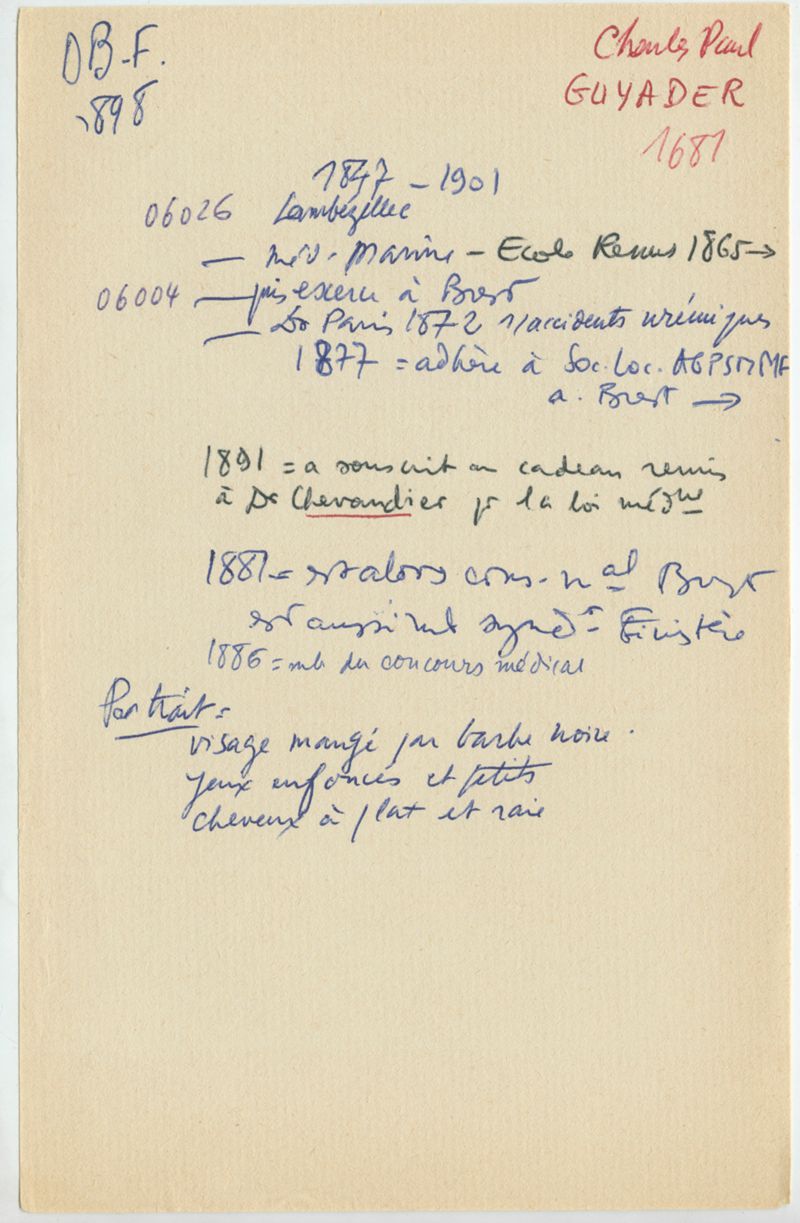 D B.F.
1898
Charles Paul
GUYADER
1681
1847 - 1901
06026 Lambézellec
- méd. Marine - Ecole Rennes 1865 →
06004 - puis exerce à Brest
- Dr Paris 1872 s/accidents urémiques
1877 = adhère à Soc. Loc. AGPSMMF
a. Brest →
1891 = a souscrit au cadeau remis
à Dr Chevandier pr la loi médle
1881 = est alors cons. mal Brest
est aussi synd Finistère
1886 = mb du concours médical
Portrait =
visage mangé par barbe noire.
yeux enfoncés et petits
cheveux à plat et raie